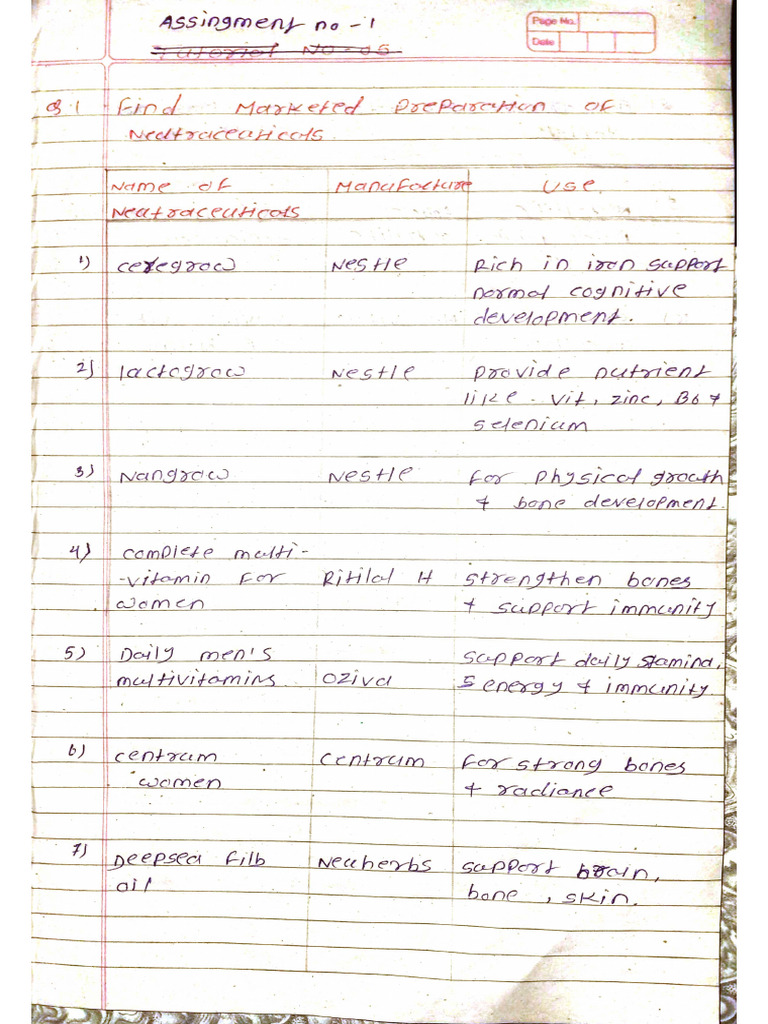 Assingment no - 1
Tutorial No - 05
Page No.
Date
Q.1 Find Marketed Preparation of
Neutraceuticals.
Name of Manufacture Use.
Neutraceuticals
1) ceregrow Nestle Rich in iron support
normal cognitive
development.
2) lactogrow Nestle Provide nutrient
like - vit, zinc, B6 &
selenium
3) Nangrow Nestle For Physical growth
& bone development.
4) complete multi-
-vitamin For Ritilal H strengthen bones
women & support immunity
5) Daily men's support daily stamina,
multivitamins Oziva energy & immunity
6) centrum centrum For strong bones
women & radiance
7) Deepsea Filb Neuherbs support brain,
oil bone, skin.